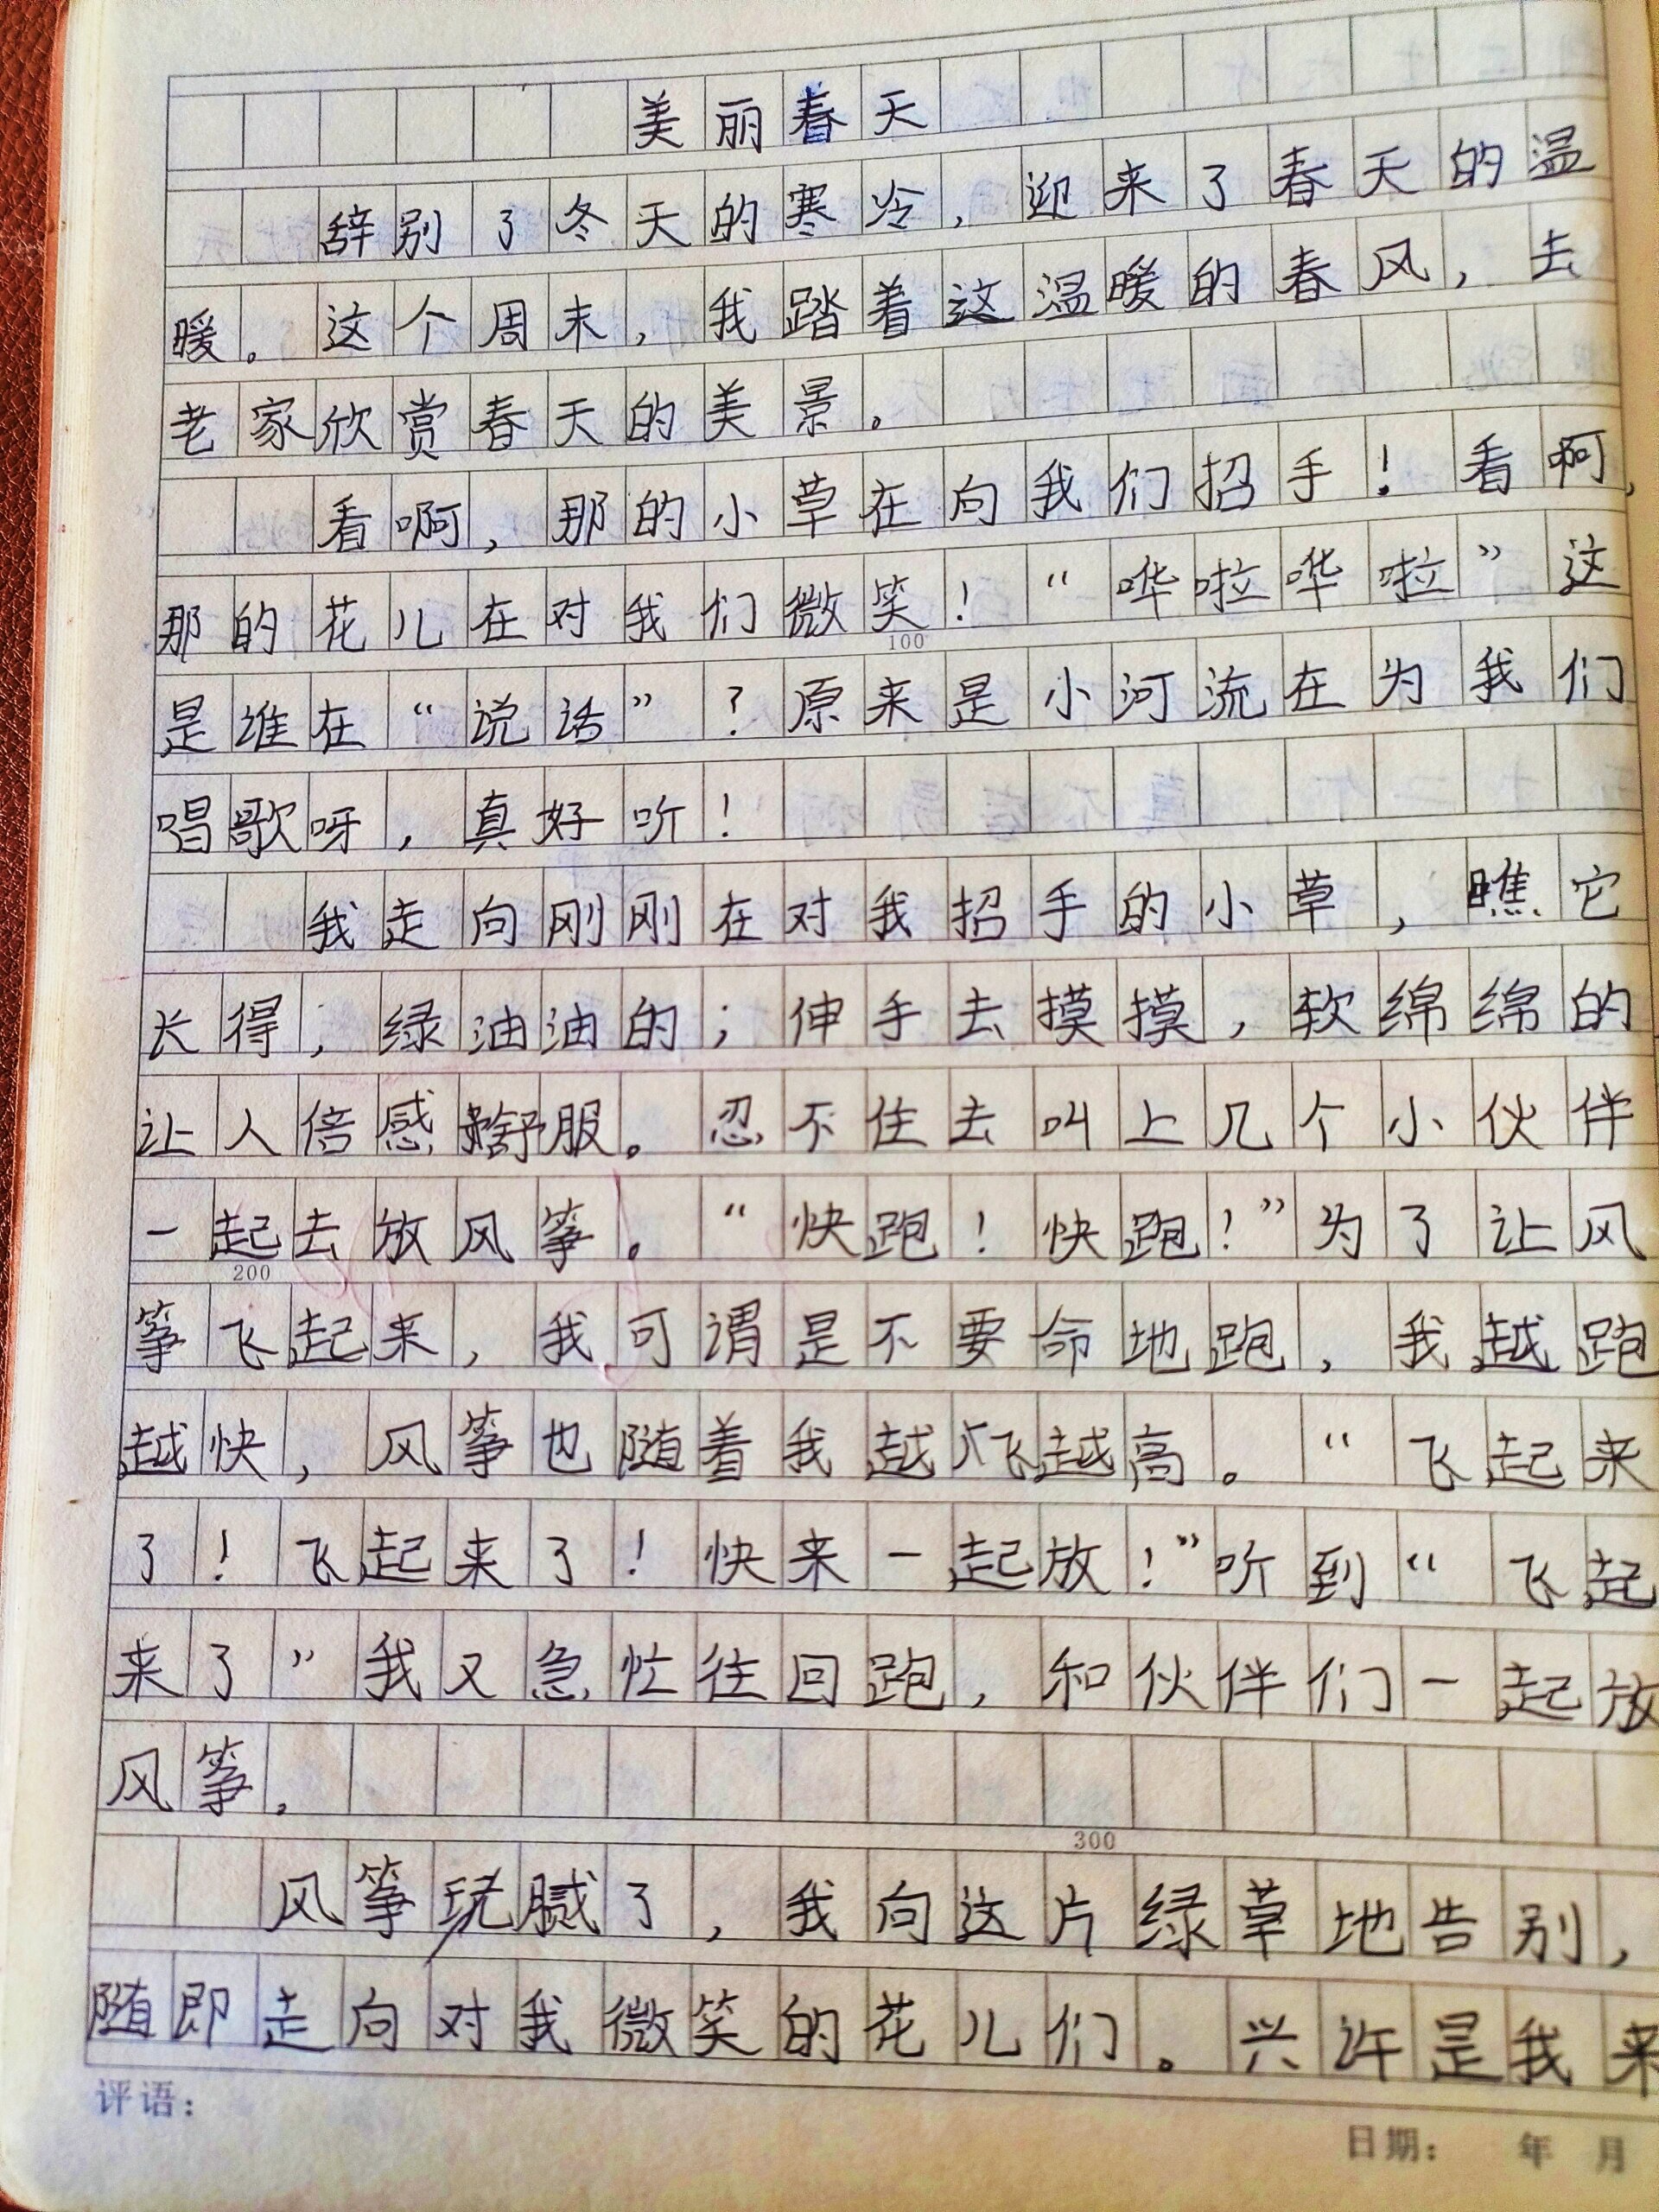 美丽春天
辞别了冬天的寒冷，迎来了春天的温
暖。这个周末，我踏着这温暖的春风，去
老家欣赏春天的美景。
看啊，那的小草在向我们招手！看啊，
那的花儿在对我们微笑！“哗啦哗啦”这
100
是谁在“说话”？原来是小河流在为我们
唱歌呀，真好听！
我走向刚刚在对我招手的小草，瞧它
长得，绿油油的；伸手去摸摸，软绵绵的
让人倍感舒服。忍不住去叫上几个小伙伴
一起去放风筝。“快跑！快跑！”为了让风
200
筝飞起来，我可谓是不要命地跑，我越跑
越快，风筝也随着我越飞越高。“飞起来
了！飞起来了！快来一起放！”听到“飞起
来了”我又急忙往回跑，和伙伴们一起放
风筝。
300
风筝玩腻了，我向这片绿草地告别，
随即走向对我微笑的花儿们。兴许是我来
评语：
日期： 年 月